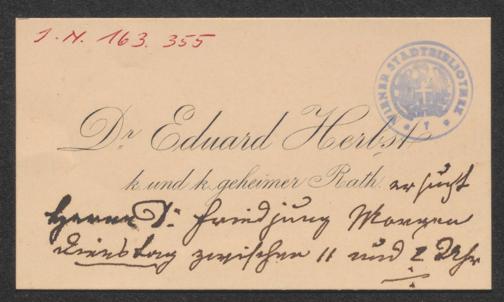 J. N. 163.355
WIENER STADTBIBLIOTHEK
Dr Eduard Herbst
k. und k. geheimer Rath. ersucht
Herrn Dr. Friedjung Morgen
Dienstag zwischen 11 und 2 Uhr